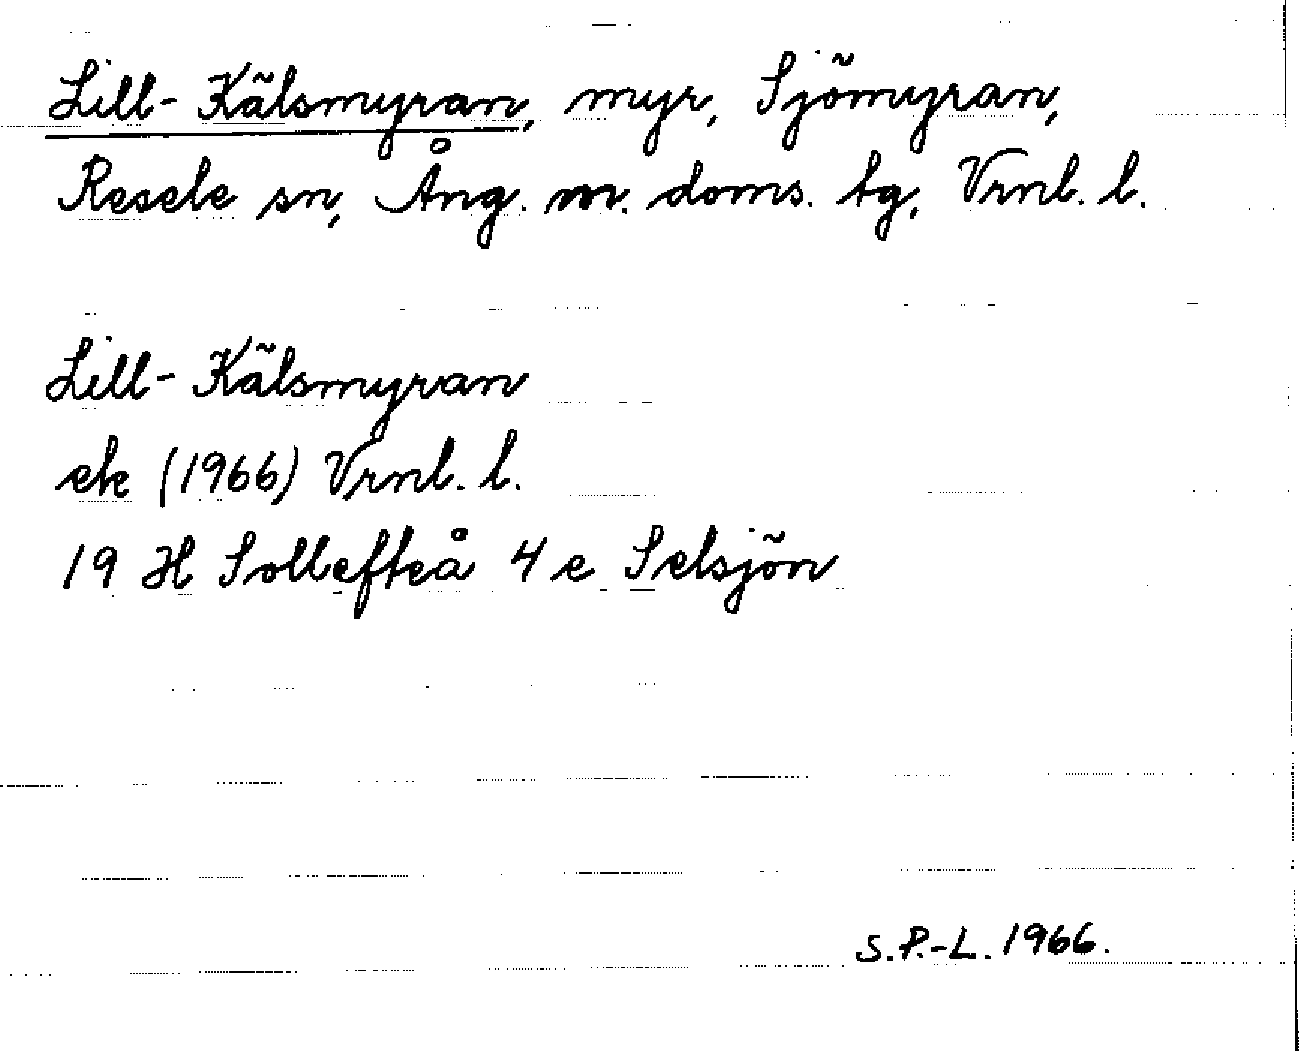 Lill-Kälsmyran, myr, Sjömyran,
Resele sn, Ång. m. doms. tg, Vrnl. l.
Lill-Kälsmyran
ek (1966) Vrnl. l.
19 H Sollefteå 4 e Selsjön
S.P.-L. 1966.